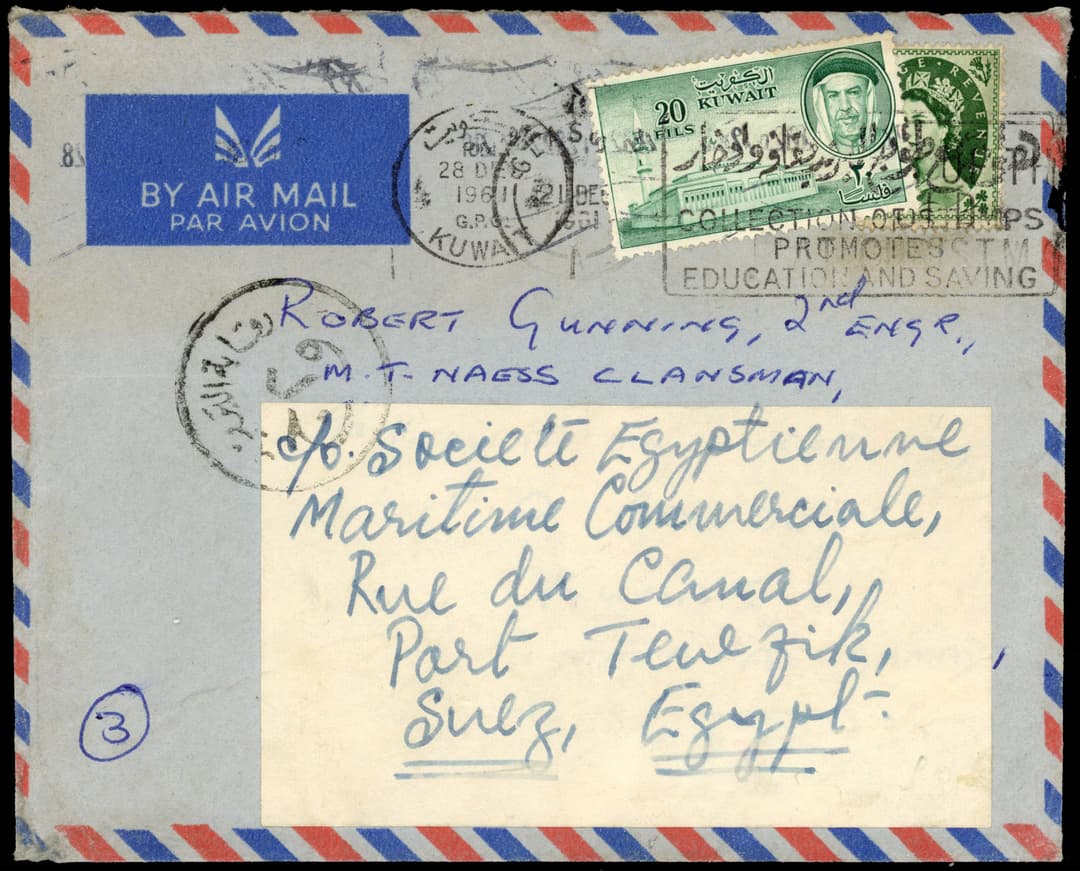 BY AIR MAIL
PAR AVION
الكويت
KUWAIT
20
FILS
٢٠
فلسا
REVENUE
28 DE
1961
G.P.O.
KUWAIT
21 DEC
COLLECTION
PROMOTES
EDUCATION AND SAVING
ROBERT GUNNING, 2nd ENGR.,
M.T. NAESS CLANSMAN,
c/o. Societé Egyptienne
Maritime Commerciale,
Rue du Canal,
Port Tewfik,
Suez, Egypt.
3